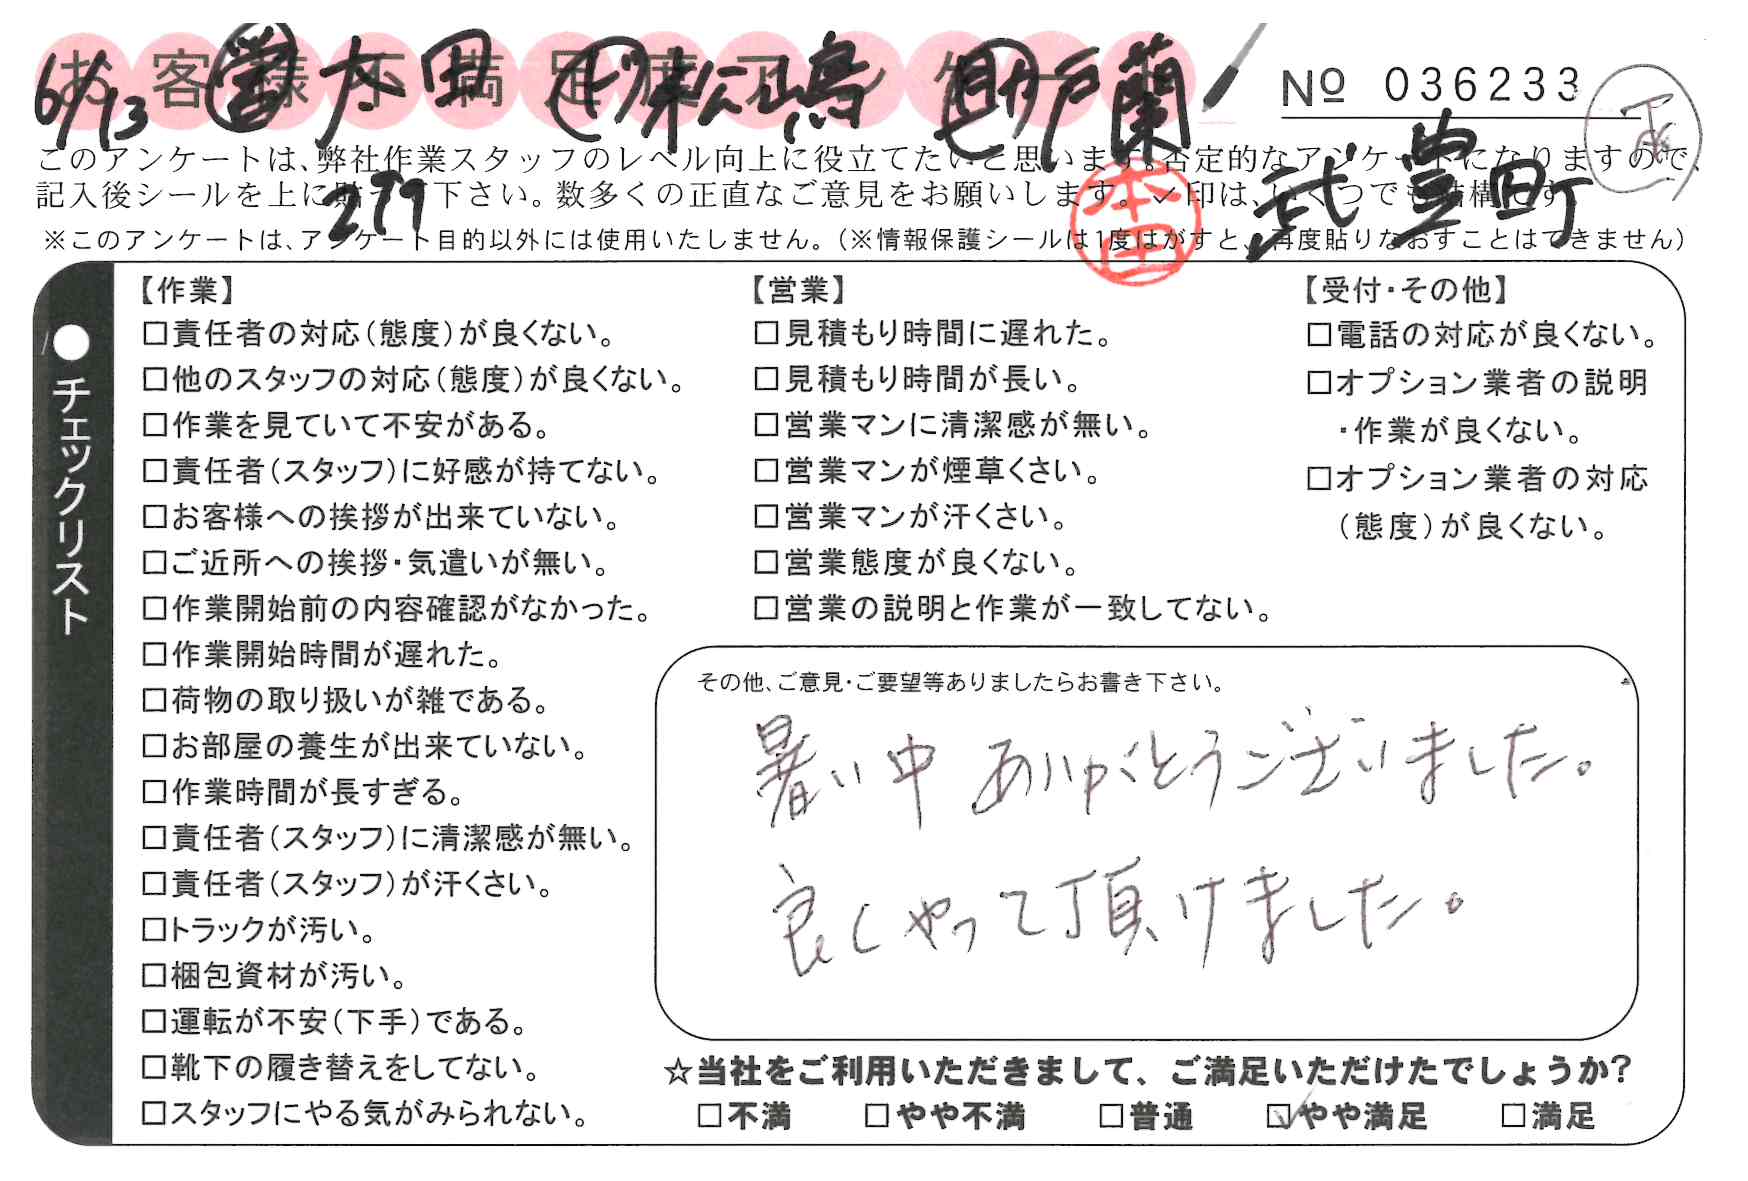 お客様不満足度アンケート
6/13 営 太田 ド 松嶋 助 戸蘭
No 036233
このアンケートは、弊社作業スタッフのレベル向上に役立てたいと思います。否定的なアンケートになりますので、
記入後シールを上に貼って下さい。数多くの正直なご意見をお願いします。✓印は、いくつでも結構です。
279 本田 武豊町
※このアンケートは、アンケート目的以外には使用いたしません。（※情報保護シールは1度はがすと、再度貼りなおすことはできません）
●チェックリスト
【作業】
□責任者の対応（態度）が良くない。
□他のスタッフの対応（態度）が良くない。
□作業を見ていて不安がある。
□責任者（スタッフ）に好感が持てない。
□お客様への挨拶が出来ていない。
□ご近所への挨拶・気遣いが無い。
□作業開始前の内容確認がなかった。
□作業開始時間が遅れた。
□荷物の取り扱いが雑である。
□お部屋の養生が出来ていない。
□作業時間が長すぎる。
□責任者（スタッフ）に清潔感が無い。
□責任者（スタッフ）が汗くさい。
□トラックが汚い。
□梱包資材が汚い。
□運転が不安（下手）である。
□靴下の履き替えをしてない。
□スタッフにやる気がみられない。
【営業】
□見積もり時間に遅れた。
□見積もり時間が長い。
□営業マンに清潔感が無い。
□営業マンが煙草くさい。
□営業マンが汗くさい。
□営業態度が良くない。
□営業の説明と作業が一致してない。
【受付・その他】
□電話の対応が良くない。
□オプション業者の説明
・作業が良くない。
□オプション業者の対応
（態度）が良くない。
その他、ご意見・ご要望等ありましたらお書き下さい。
暑い中 ありがとうございました。
良くやって頂けました。
☆当社をご利用いただきまして、ご満足いただけたでしょうか?
□不満 □やや不満 □普通 ☑やや満足 □満足